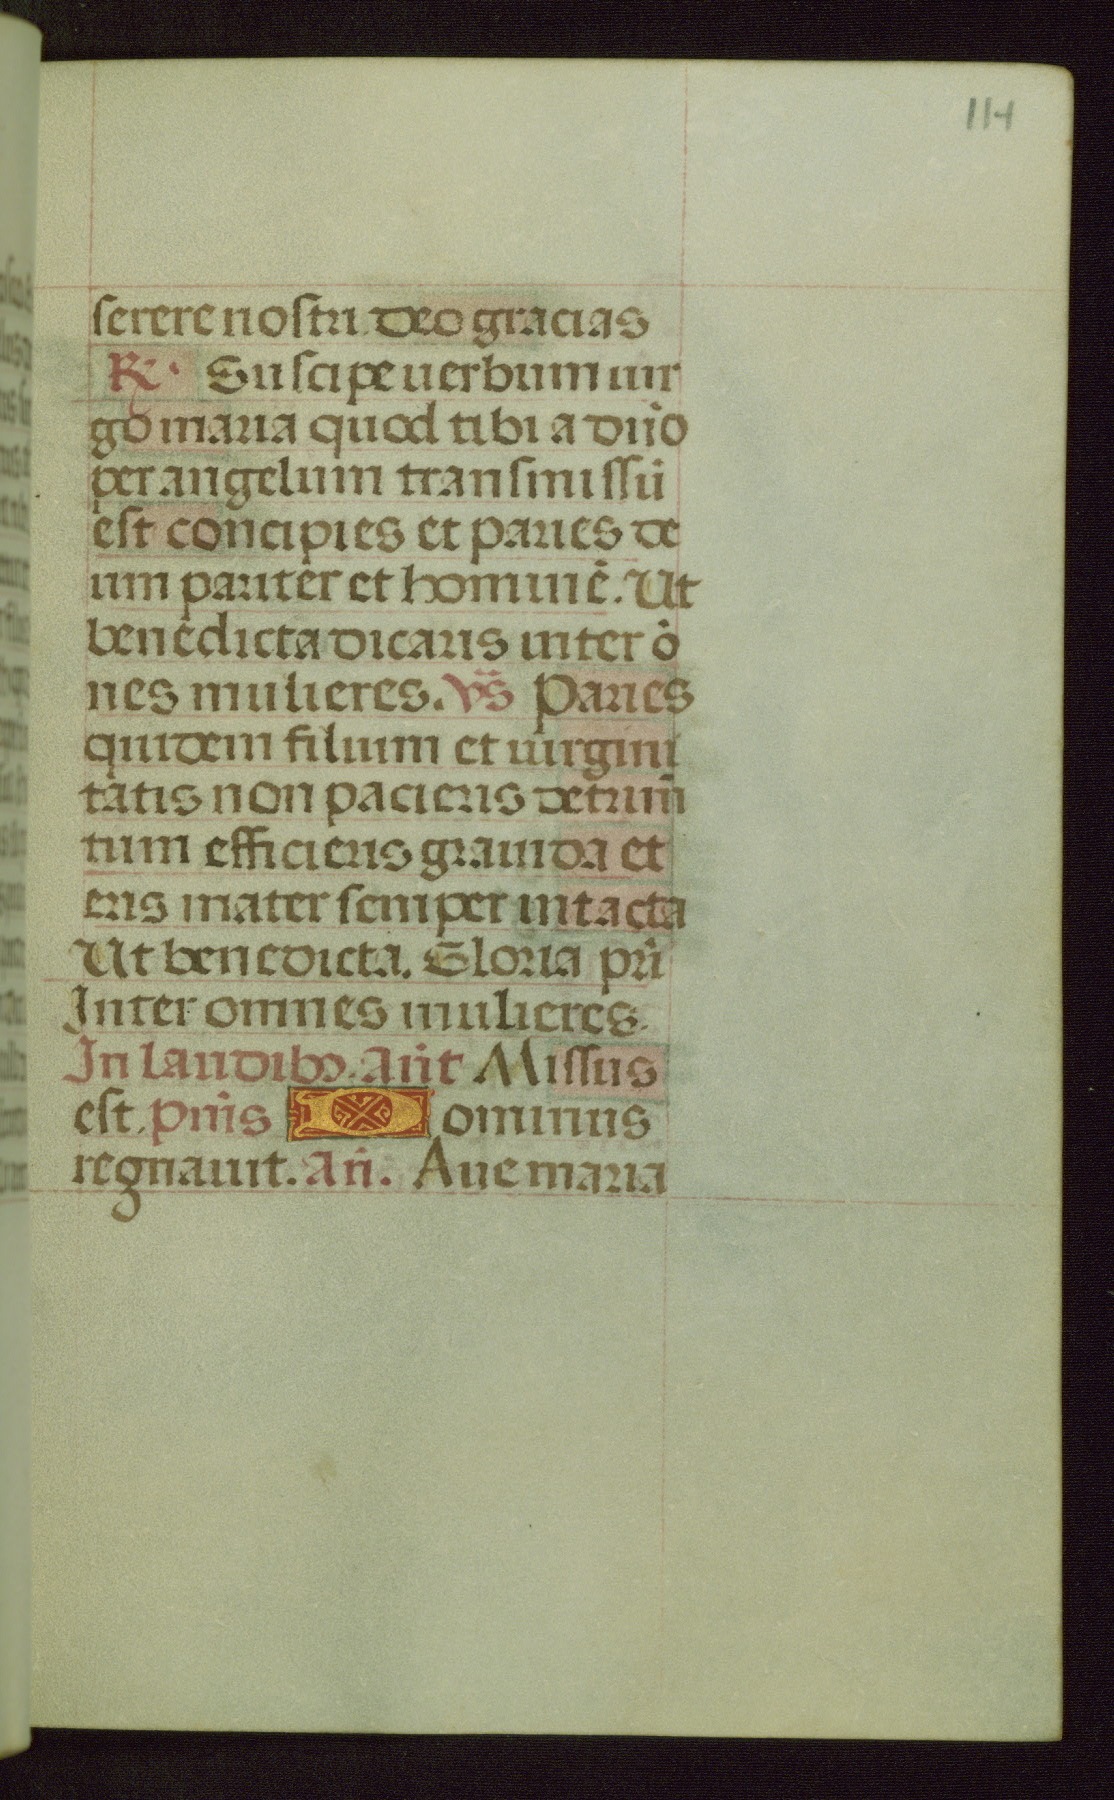 114
serere nostri deo gracias
R. Suscipe uerbum uir
go maria quod tibi a dño
per angelum transmissũ
est concipies et paries de
um pariter et hominẽ. Ut
benedicta dicaris inter õ
nes mulieres. Vs̃ Paries
quidem filium et uirgini
tatis non pacieris detrim̃
tum efficieris grauida et
eris mater semper intacta
Ut benedicta. Gloria pr̃i
Inter omnes mulieres.
In laudibꝰ. Añt Missus
est. pm̃s Dominus
regnauit. Añ. Aue maria